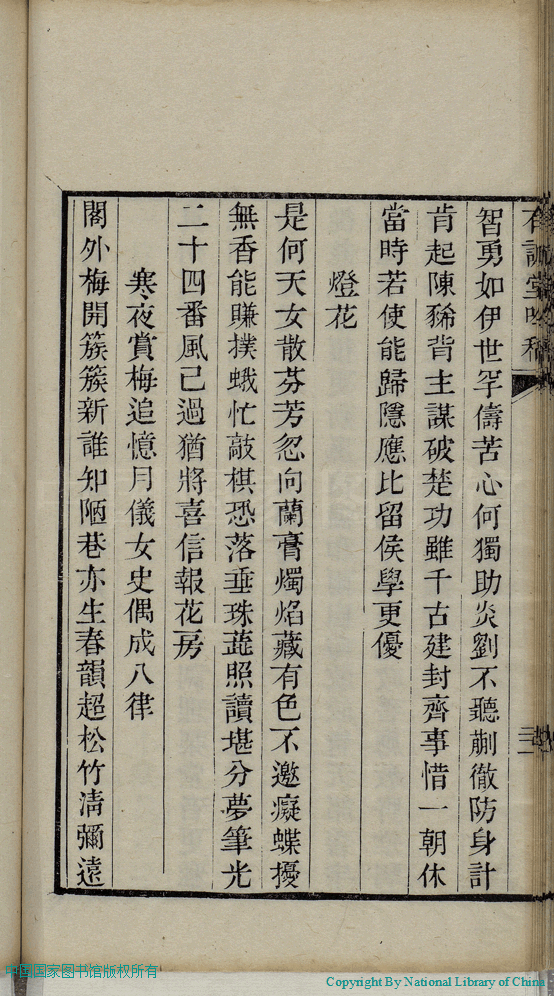 智勇如伊世罕儔苦心何獨助炎劉不聽蒯徹防身計
肯起陳豨背主謀破楚功雖千古建封齊事惜一朝休
當時若使能歸隱應比留侯學更優
燈花
是何天女散芬芳忽向蘭膏燭焰藏有色不邀癡蝶擾
無香能賺撲蛾忙敲棋恐落垂珠蕋照讀堪分夢筆光
二十四番風已過猶將喜信報花房
寒夜賞梅追憶月儀女史偶成八律
閣外梅開簇簇新誰知陋巷亦生春韻超松竹清彌遠
中国国家图书馆版权所有
Copyright By National Library of China